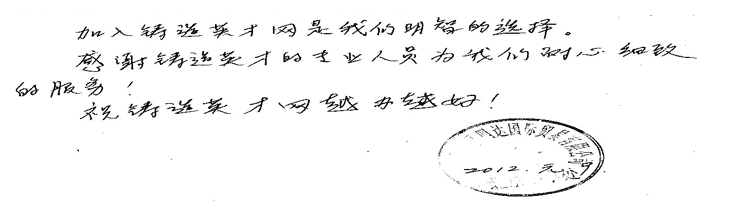 加入铸造英才网是我们明智的选择。
感谢铸造英才的专业人员为我们耐心细致
的服务！
祝铸造英才网越办越好！
达国际贸易有限公司
2012.元.9